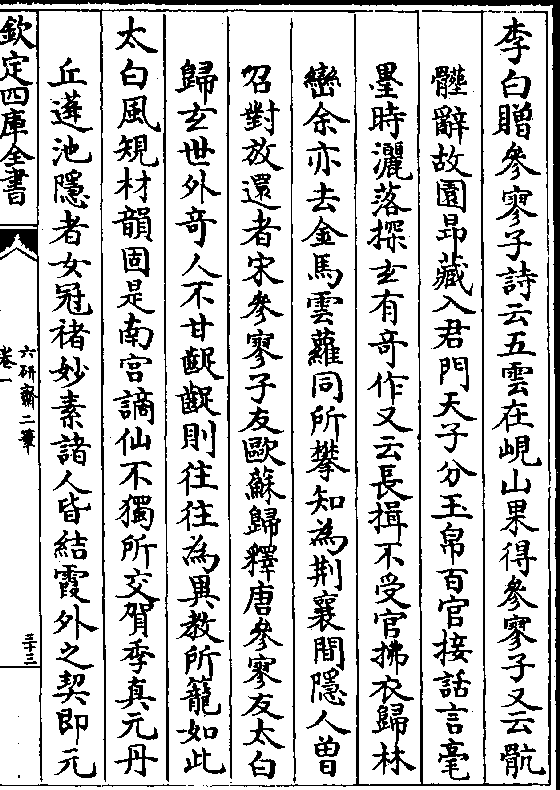 李白贈參寥子詩云五雲在峴山果得參寥子又云骯
髒辭故園昂藏入君門天子分玉帛百官接話言毫
墨時灑落探玄有奇作又云長揖不受官拂衣歸林
巒余亦去金馬雲蘿同所攀知為荆襄間隱人曽
召對放還者宋參寥子友歐蘇歸釋唐參寥友太白
歸玄世外奇人不甘齪齪則往往為異教所籠如此
太白風䂓材韻固是南宫謫仙不獨所交賀季真元丹
丘蓬池隱者女冠褚妙素諸人皆結霞外之契即元
欽定四庫全書
六研齋二筆
卷一
三十三